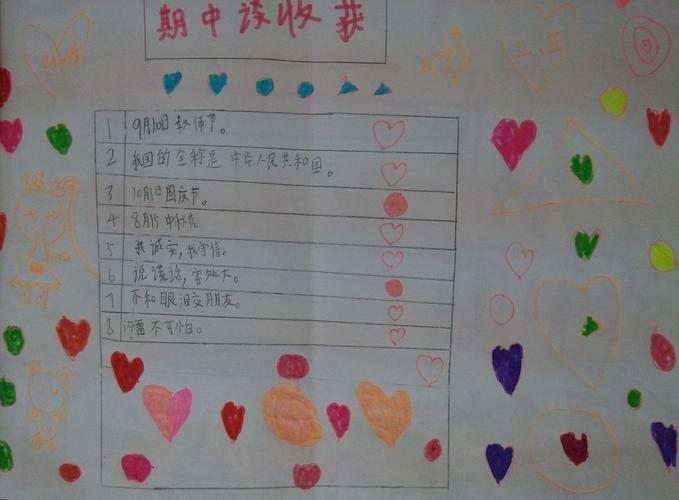 期中谈收获
二、五
1 9月10日教师节。
2 我国的全称是中华人民共和国。
3 10月1日国庆节。
4 8月15中秋节。
5 我诚实，我守信。
6 说谎话，害处大。
7 不和眼泪交朋友。
8 问雷不可怕。